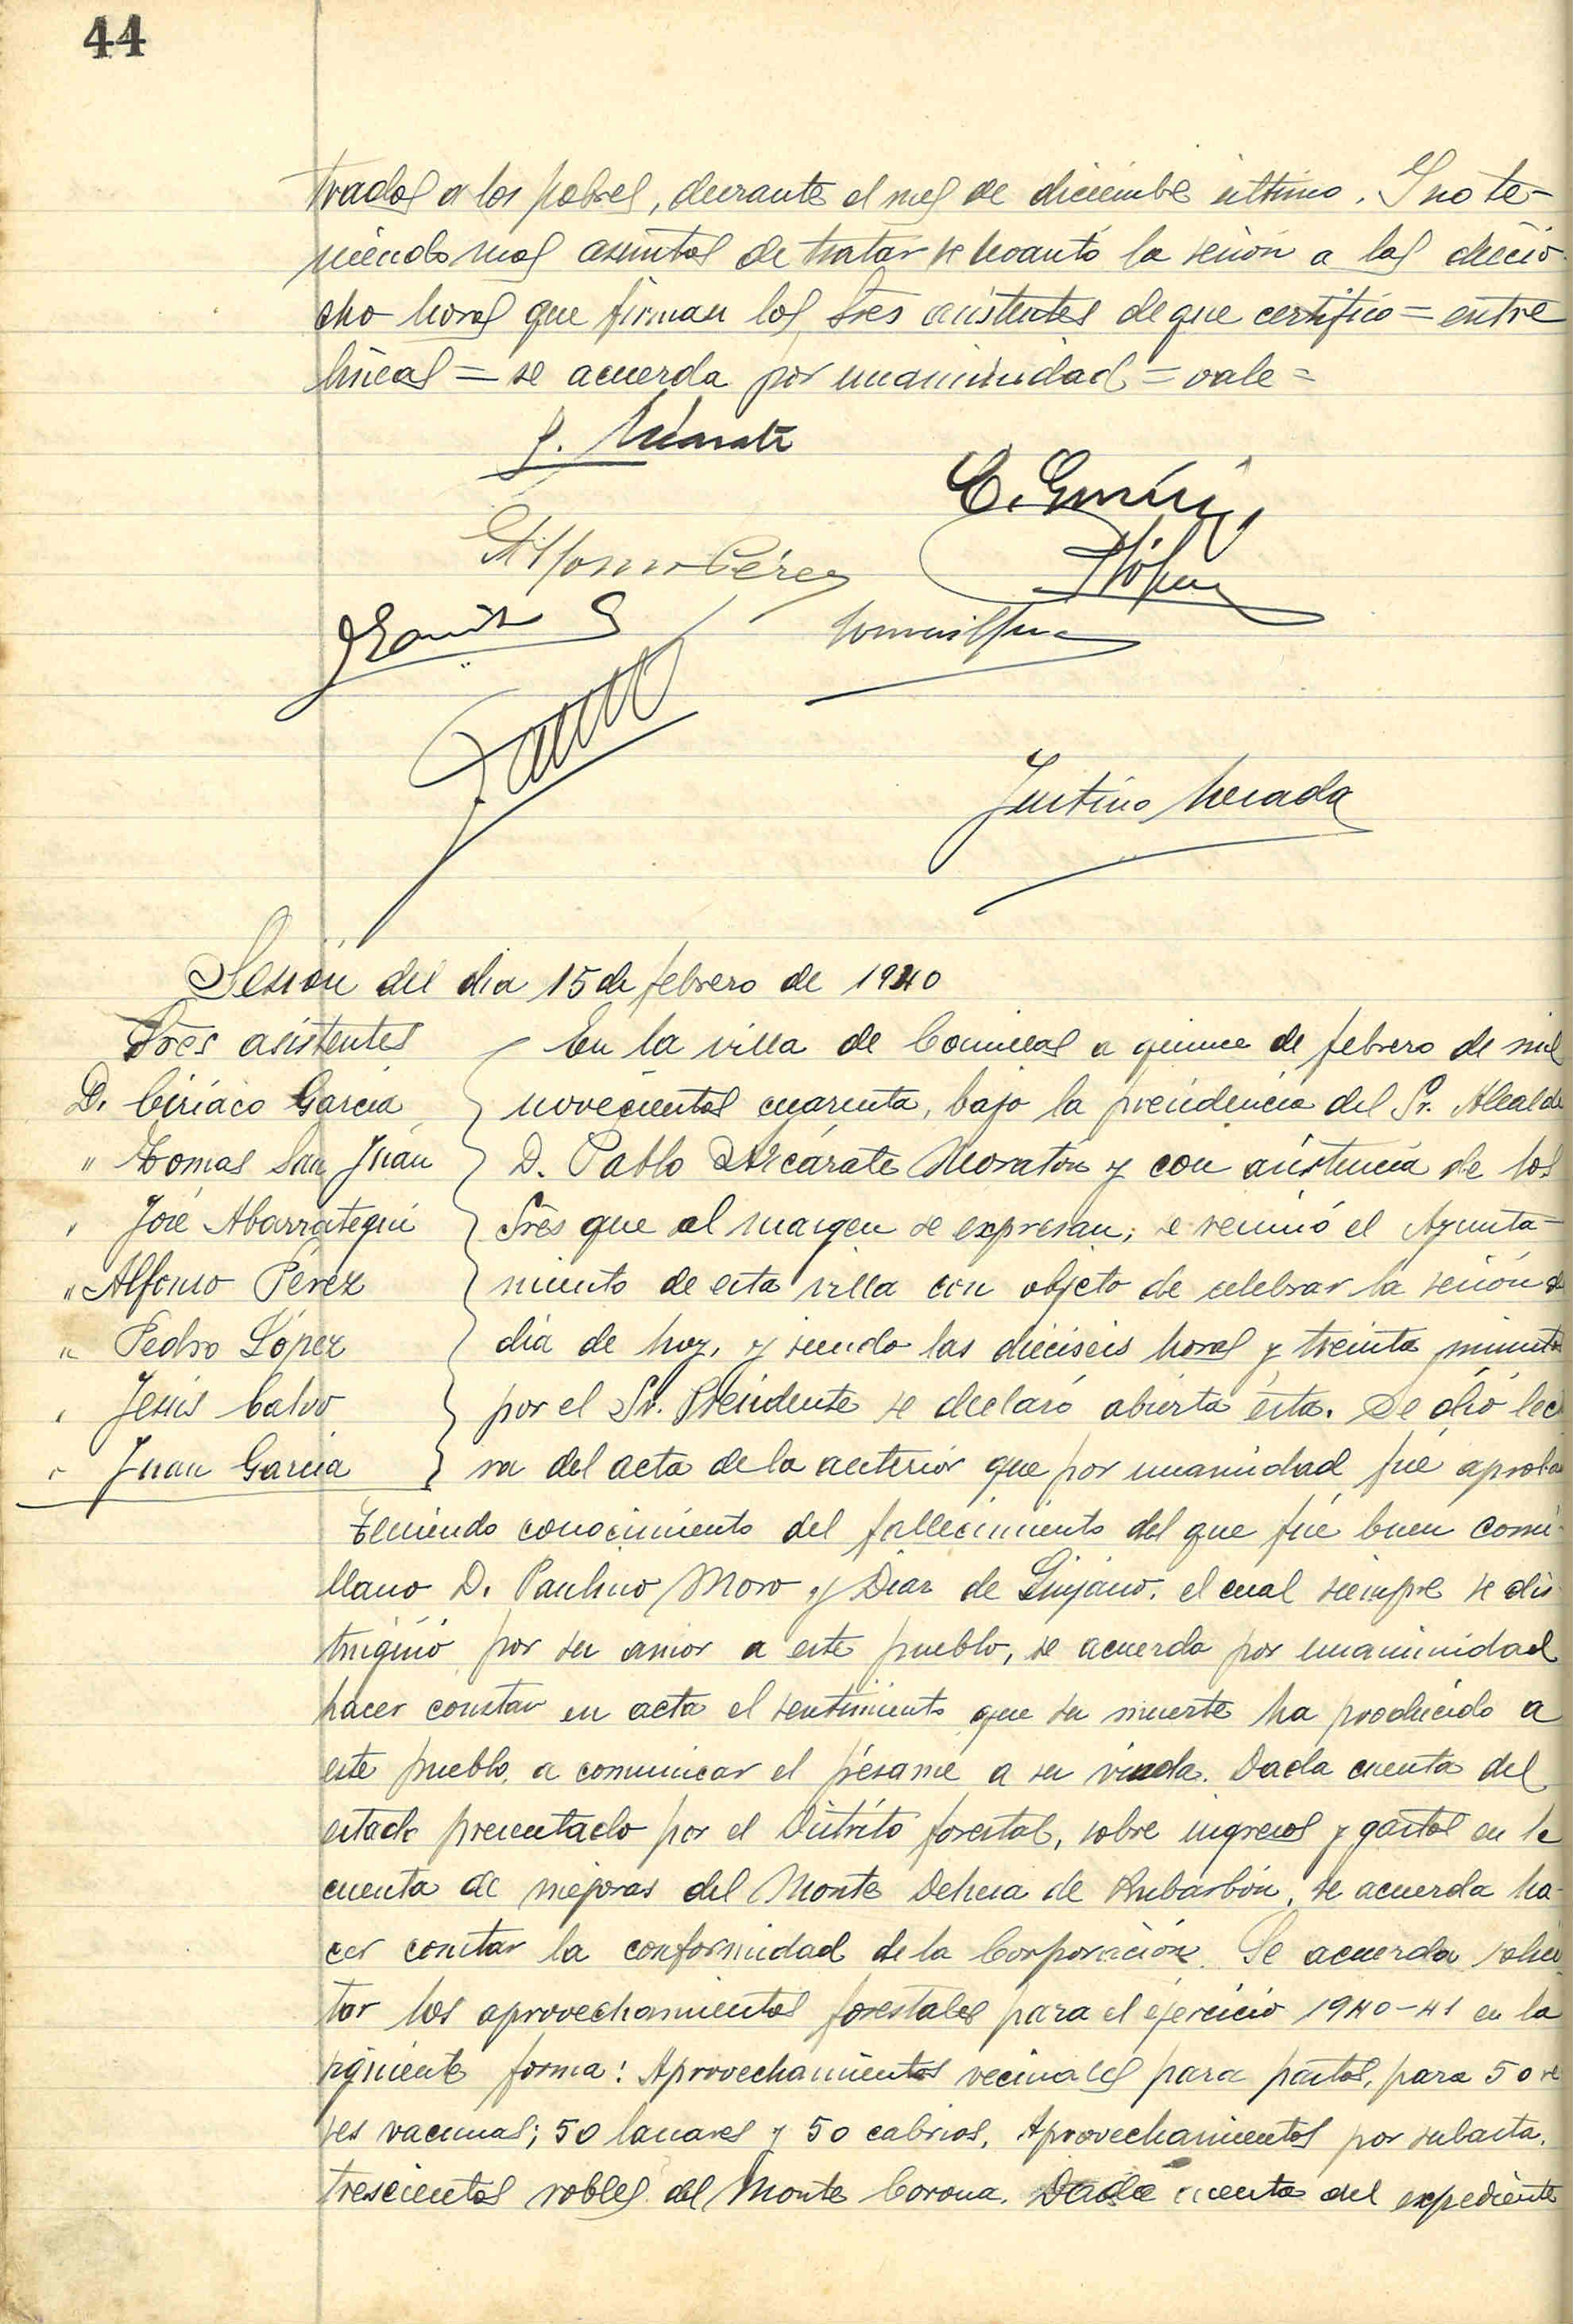 44
trados a los pobres, durante el mes de diciembre último. Y no te-
niendo mas asuntos de tratar se levantó la sesión a las diecio-
cho horas que firman los Sres asistentes de que certifico = entre
lineas = se acuerda por unanimidad = vale =
C. García
Alfonso Pérez
PLópez
Justino
Sesión del dia 15 de febrero de 1940
Sres asistentes
D. Ciriaco García
" Tomas San Juan
" José Abarrategui
" Alfonso Pérez
" Pedro López
" Jesús Calvo
" Juan García
En la villa de Comillas a quince de febrero de mil
novecientos cuarenta, bajo la presidencia del Sr. Alcalde
D. Pablo Azcárate Moratón y con asistencia de los
Sres que al margen se expresan, se reunió el Ayunta-
miento de esta villa con objeto de celebrar la sesión de
dia de hoy, y siendo las dieciseis horas y treinta minutos
por el Sr. Presidente se declaró abierta ésta. Se dió lec
ra del acta de la anterior que por unanimidad fué aproba
Teniendo conocimiento del fallecimiento del que fué buen comi-
llano D. Paulino Moro y Diaz de Quijano, el cual siempre se dis-
tinguió por su amor a este pueblo, se acuerda por unanimidad
hacer constar en acta el sentimiento que su muerte ha producido a
este pueblo, a comunicar el pésame a su viuda. Dada cuenta del
estado presentado por el Distrito forestal, sobre ingresos y gastos en la
cuenta de mejoras del Monte Dehesa de Rubarbón, se acuerda ha-
cer constar la conformidad de la Corporación. Se acuerda solici-
tar los aprovechamientos forestales para el ejercicio 1940-41 en la
siguiente forma: Aprovechamientos vecinales para pastos, para 50 re
ses vacunas; 50 lanares y 50 cabrios. Aprovechamientos por subasta,
trescientos robles del Monte Corona. Dada cuenta del expediente